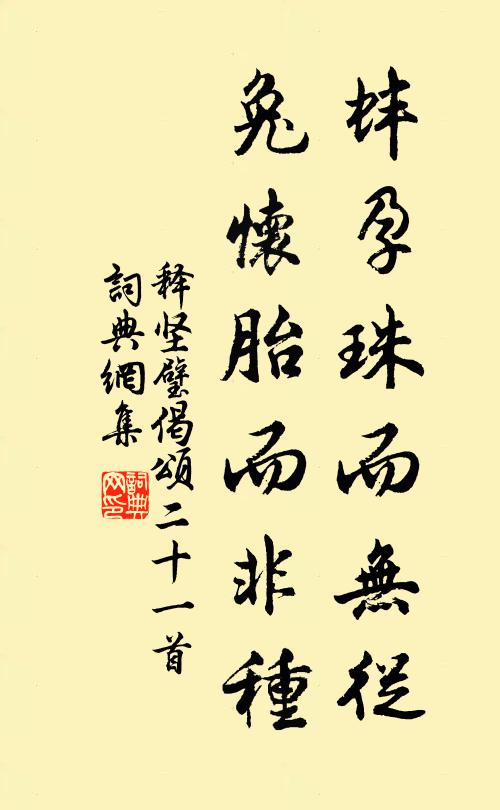 蚌孕珠而無從
兔懷胎而非種
释坚璧偈頌二十一首
詞典網集
詞典网印